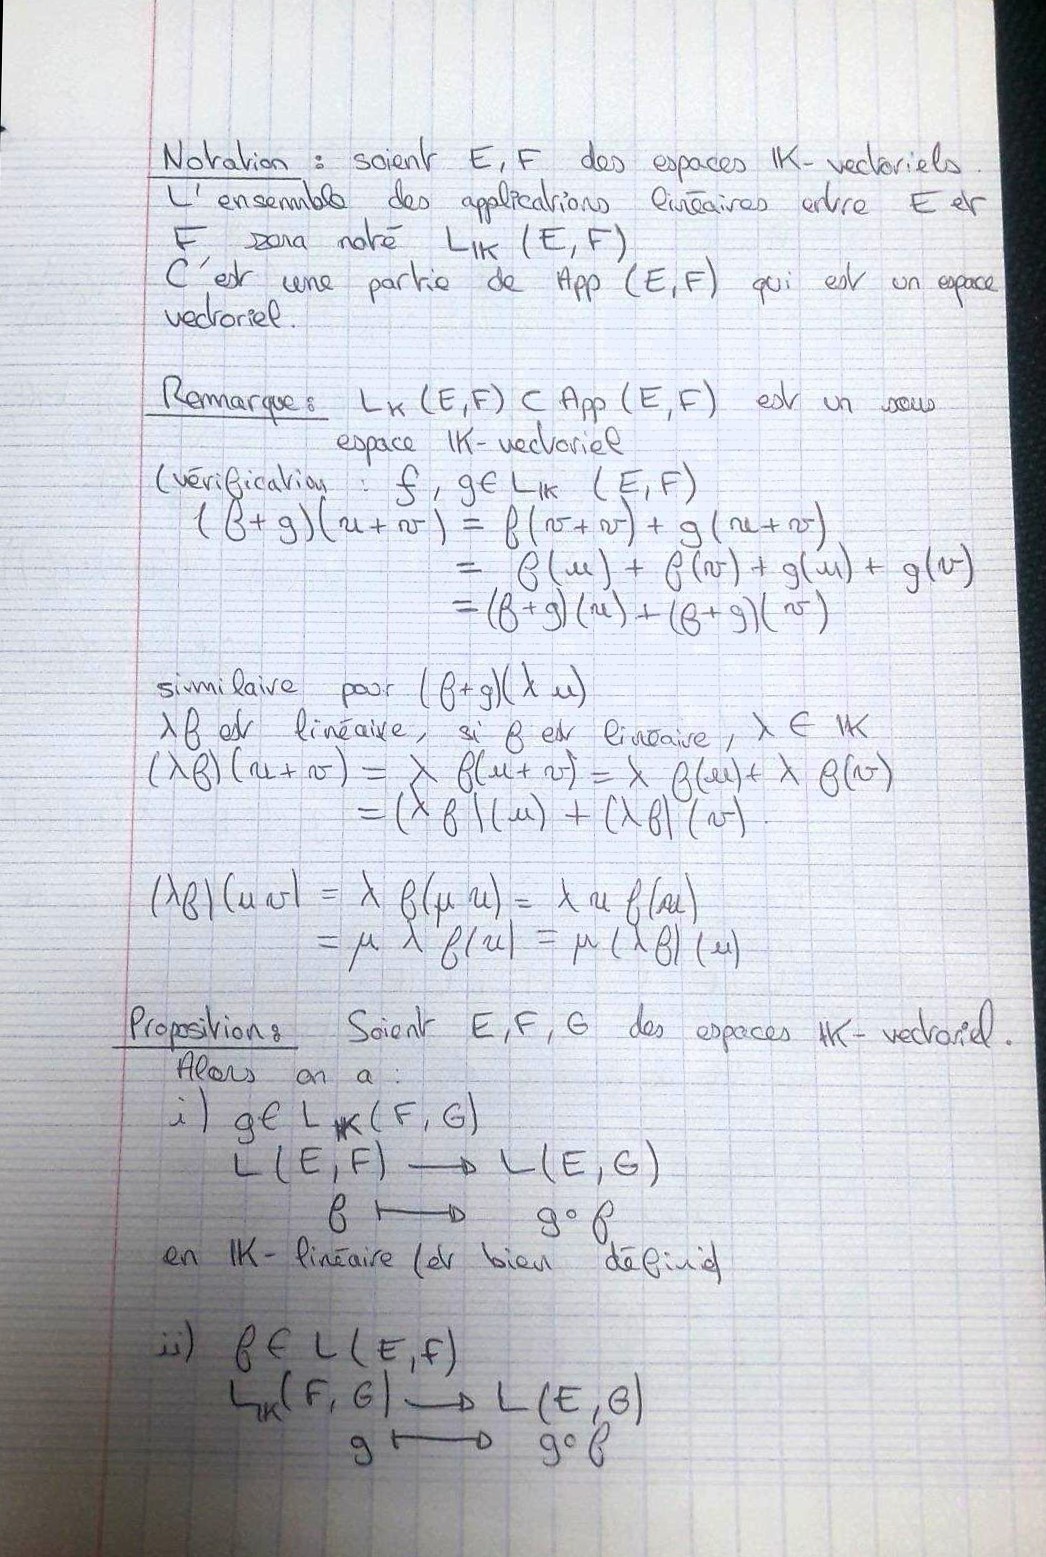 Notation : soient E, F des espaces IK-vectoriels.
L'ensemble des applications linéaires entre E et
F sera noté L_IK (E, F)
C'est une partie de App (E, F) qui est un espace
vectoriel.
Remarque : L_K (E, F) ⊂ App (E, F) est un sous
espace IK-vectoriel
(vérification : f, g ∈ L_IK (E, F)
(f+g)(u+v) = f(v+v) + g(u+v)
= f(u) + f(v) + g(u) + g(v)
= (f+g)(u) + (f+g)(v)
similaire pour (f+g)(λ u)
λf est linéaire, si f est linéaire, λ ∈ IK
(λf)(u+v) = λ f(u+v) = λ f(u) + λ f(v)
= (λf)(u) + (λf)(v)
(λf)(u v) = λ f(μ u) = λ u f(u)
= μ λ f(u) = μ (λf)(u)
Proposition : Soient E, F, G des espaces IK-vectoriel.
Alors on a :
i) g ∈ L_IK (F, G)
L(E, F) → L(E, G)
f ↦ g∘f
en IK-linéaire (et bien défini)
ii) f ∈ L(E, F)
L_IK (F, G) → L(E, G)
g ↦ g∘f